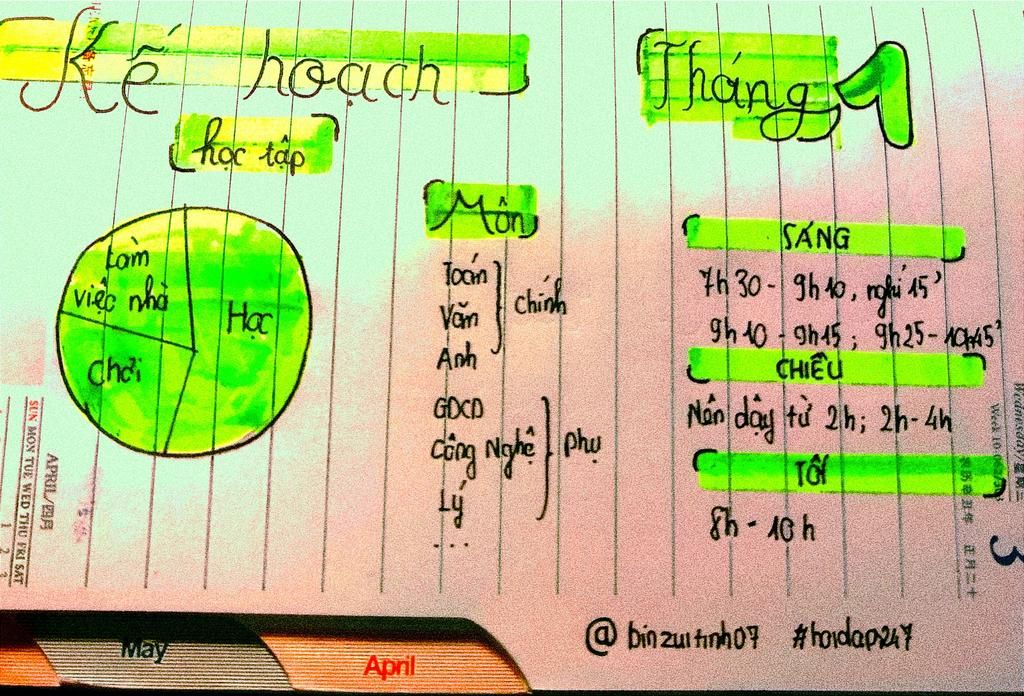 Kế hoạch
học tập
Tháng 1
Làm
việc nhà
Học
Chơi
Môn
Toán
Văn
Anh
Chính
GDCD
Công Nghệ
Lý
....
Phụ
SÁNG
7h30 - 9h10, nghỉ 15'
9h10 - 9h15; 9h25 - 10h45'
CHIỀU
Nên dậy từ 2h; 2h - 4h
TỐI
8h - 10h
@binzuitinh07 #hoidap247
APRIL/四月
SUN MON TUE WED THU FRI SAT
1 2 3
3
May
April